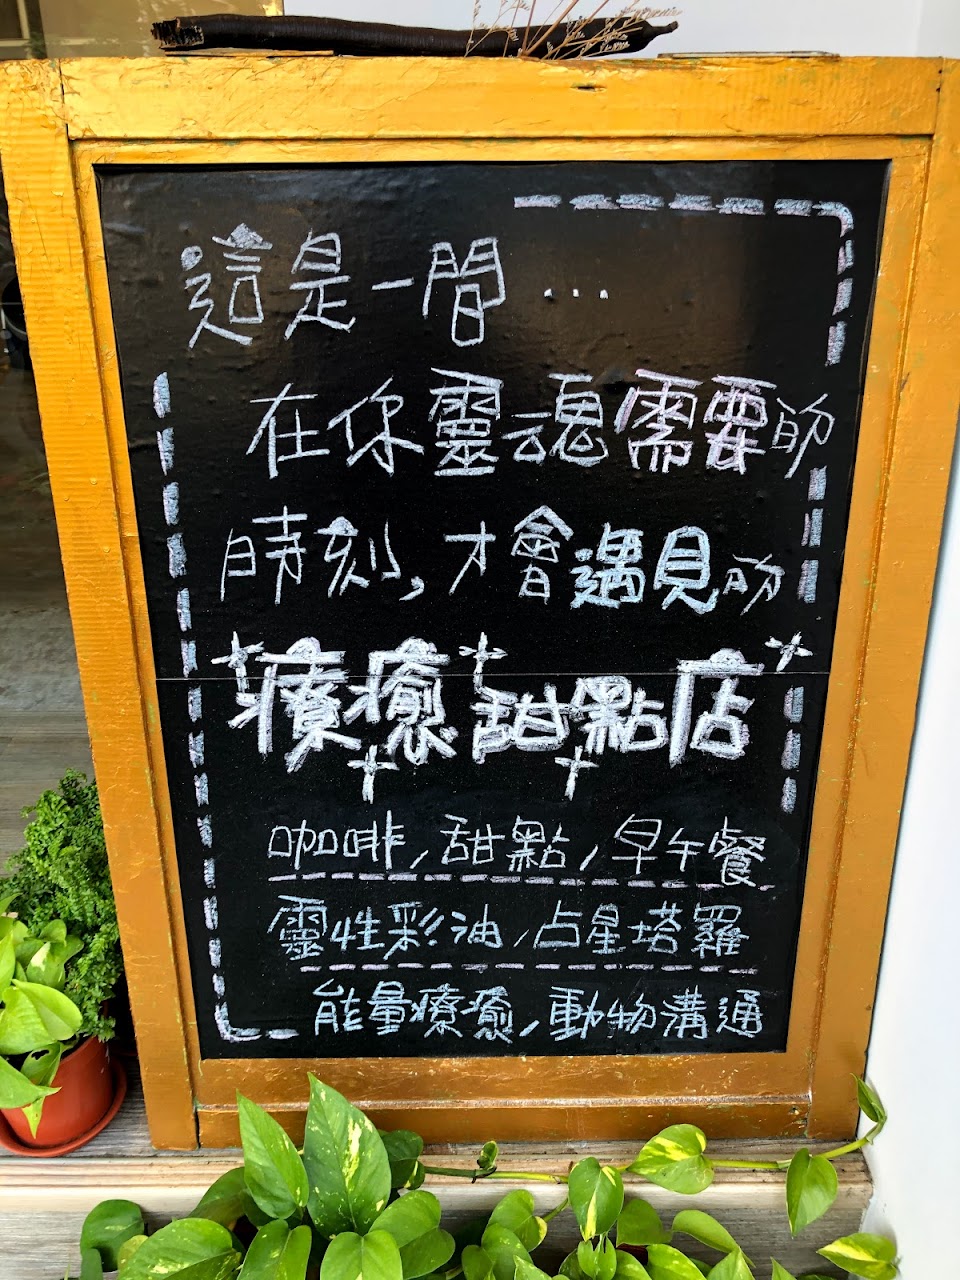 這是一間...
在你靈魂需要的
時刻,才會遇見的
療癒甜點店
咖啡,甜點,早午餐
靈性彩油,占星塔羅
能量療癒,動物溝通